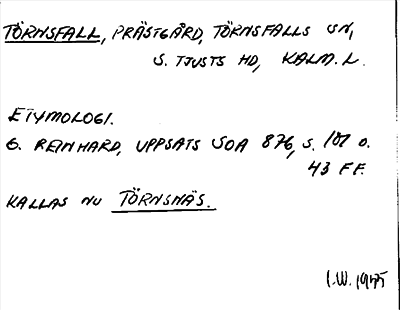 TÖRNSFALL, PRÄSTGÅRD, TÖRNSFALLS SN,
S. TJUSTS HD, KALM. L.
ETYMOLOGI.
G. REINHARD, UPPSATS SOA 876, S. 101 O.
43 FF.
KALLAS NU TÖRNSNÄS.
I.W. 1975